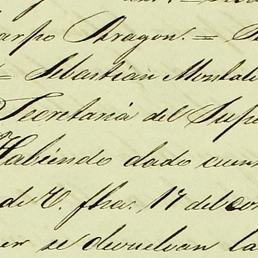 Aragon. =
= Sebastián Montal
Secretaria del Supe
Habiendo dado cuen
de V. fha. 17 del co
er se devuelvan la